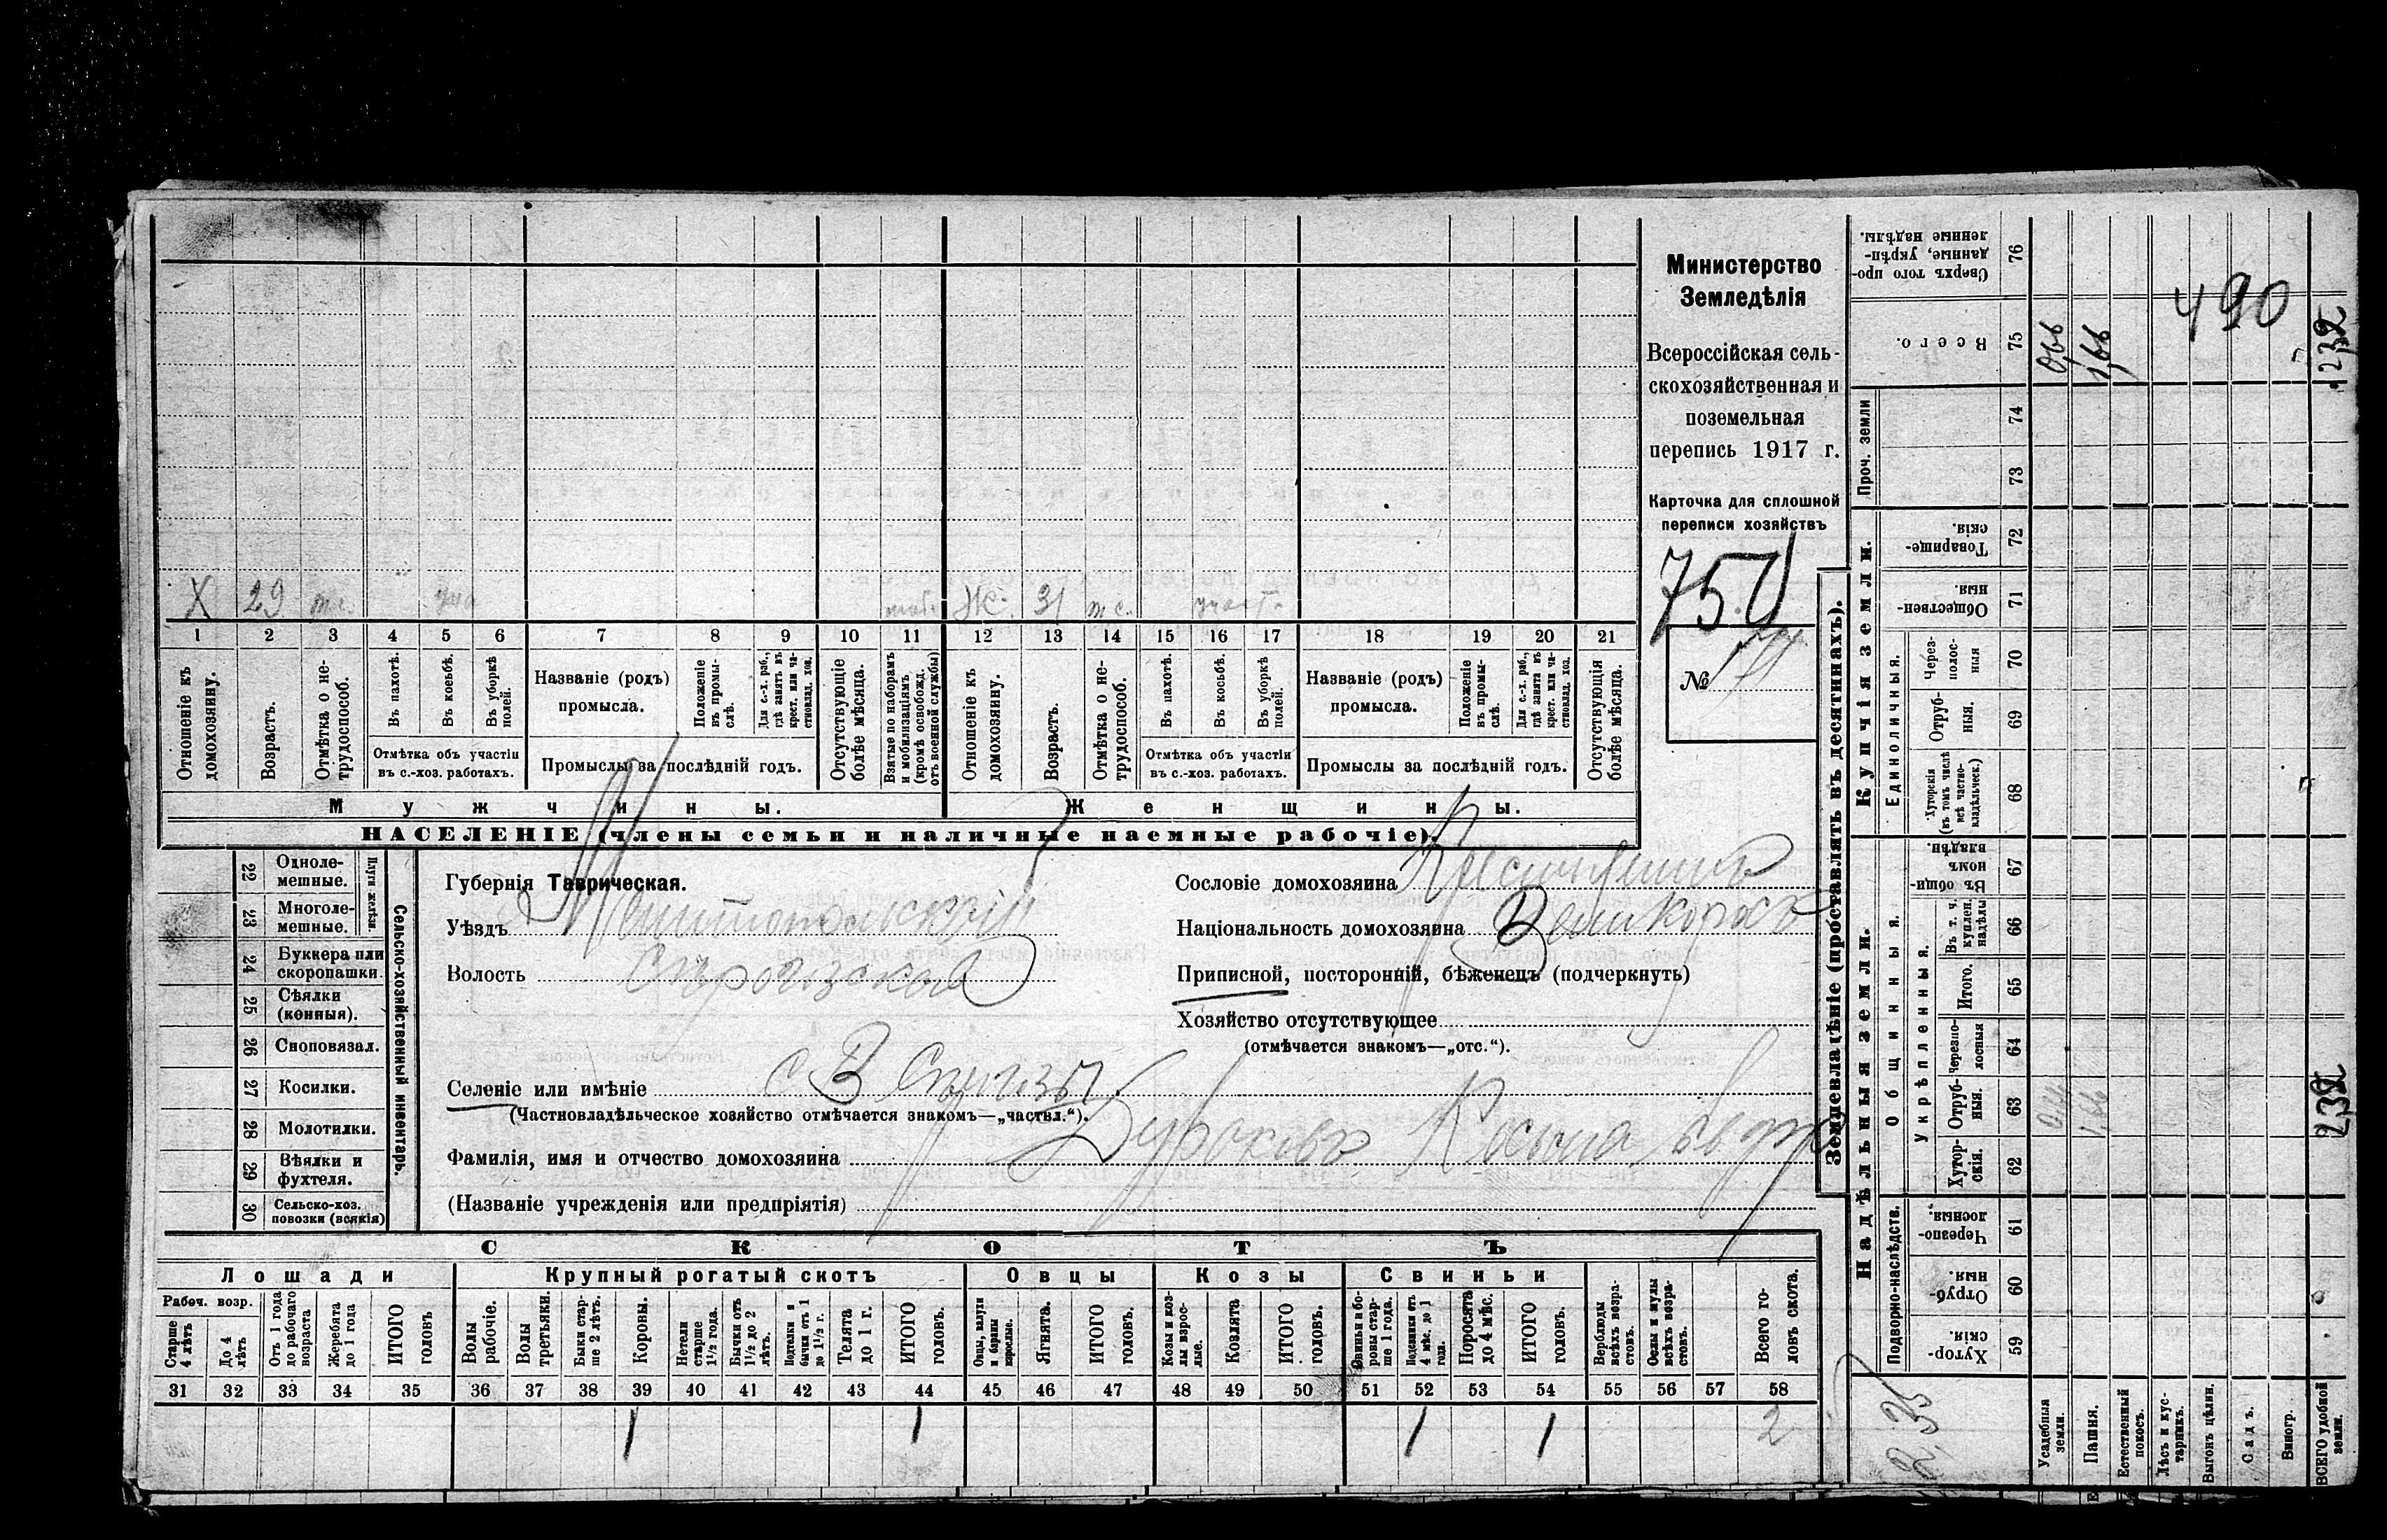 Министерство
Земледѣлія
Всероссійская сель-
скохозяйственная и
поземельная
перепись 1917 г.
Карточка для сплошной
переписи хозяйствъ
750
№
X 29 31
1 2 3 4 5 6 7 8 9 10 11 12 13 14 15 16 17 18 19 20 21
Отношеніе къ домохозяину.
Возрастъ.
Отмѣтка о не-трудоспособ.
Въ пахотѣ.
Въ косьбѣ.
Въ уборкѣ полей.
Отмѣтка объ участіи
въ с.-хоз. работахъ.
Названіе (родъ)
промысла.
Положеніе въ промы-слѣ.
Для с.-х. раб., гдѣ занятъ въ крест. или ча-стновлад. хоз.
Промыслы за послѣдній годъ.
Отсутствующіе болѣе мѣсяца.
Взятые по наборамъ и мобилизаціямъ (кромѣ освобожд. отъ военной службы)
Отношеніе къ домохозяину.
Возрастъ.
Отмѣтка о не-трудоспособ.
Въ пахотѣ.
Въ косьбѣ.
Въ уборкѣ полей.
Отмѣтка объ участіи
въ с.-хоз. работахъ.
Названіе (родъ)
промысла.
Положеніе въ промы-слѣ.
Для с.-х. раб., гдѣ занята въ крест. или ча-стновлад. хоз.
Промыслы за послѣдній годъ.
Отсутствующія болѣе мѣсяца.
Мужчины.
Женщины.
НАСЕЛЕНІЕ (члены семьи и наличные наемные рабочіе).
Сельско-хозяйственный инвентарь.
Плуги желѣзн.
22 Одноле-
мешные.
23 Многоле-
мешные.
24 Буккера или
скоропашки.
25 Сѣялки
(конныя).
26 Сноповязал.
27 Косилки.
28 Молотилки.
29 Вѣялки и
фухтеля.
30 Сельско-хоз.
повозки (всякія)
Губернія Таврическая.
Уѣздъ Мелитопольскій
Волость
Селеніе или имѣніе с В
(Частновладѣльческое хозяйство отмѣчается знакомъ—„частвл.“).
Фамилія, имя и отчество домохозяина
(Названіе учрежденія или предпріятія)
Сословіе домохозяина
Національность домохозяина
Приписной, посторонній, бѣженецъ (подчеркнуть)
Хозяйство отсутствующее
(отмѣчается знакомъ—„отс.“).
СКОТЪ
Лошади
Крупный рогатый скотъ
Овцы
Козы
Свиньи
Рабоч. возр.
Старше 4 лѣтъ
До 4 лѣтъ
Отъ 1 года до рабочаго возраста
Жеребята до 1 года
ИТОГО головъ
Волы рабочіе.
Волы третьяки.
Быки стар-ше 2 лѣтъ.
Коровы.
Нетели старше 1½ года.
Бычки отъ 1½ до 2 лѣтъ.
Подтелки и бычки отъ 1 до 1½ г.
Телята до 1 г.
ИТОГО головъ.
Овцы, валухи и бараны взрослые.
Ягнята.
ИТОГО головъ.
Козы и коз-лы взрос-лые.
Козлята
ИТОГО головъ.
Свиньи и бо-ровы стар-ше 1 года.
Подсвинки отъ 4 мѣс. до 1 года.
Поросята до 4 мѣс.
ИТОГО головъ.
Верблюды всѣхъ возра-стовъ.
Ослы и мулы всѣхъ возра-стовъ.
Всего го-ловъ скота.
31 32 33 34 35 36 37 38 39 40 41 42 43 44 45 46 47 48 49 50 51 52 53 54 55 56 57 58
1 1 1 1 2
Землевладѣніе (проставлять въ десятинахъ).
Надѣльныя земли.
Купчія земли.
Проч. земли
Подворно-наслѣдств.
Общинныя.
Укрѣпленныя.
Единоличныя.
Хутор-скія. 59
Отруб-ныя. 60
Черезпо-лосныя. 61
Хутор-скія. 62
Отруб-ныя. 63
Черезпо-лосныя 64
Итого. 65
Въ т. ч. куплен. надѣлы 66
Въ общи-номъ владѣн. 67
Хуторскія (въ томъ числѣ всѣ частно-владѣльческ.) 68
Отруб-ныя. 69
Через-полос-ныя 70
Обществен-ныя 71
Товарище-скія. 72
73
74
Всего. 75
Сверхъ того про-данные, укрѣп-ленные надѣлы. 76
Усадебныя земли.
Пашня.
Естественный покосъ.
Лѣсъ и кус-тарникъ.
Выгонъ цѣлин.
Садъ.
Виногр.
ВСЕГО удобной земли.
1,66
490
2,32
2,32